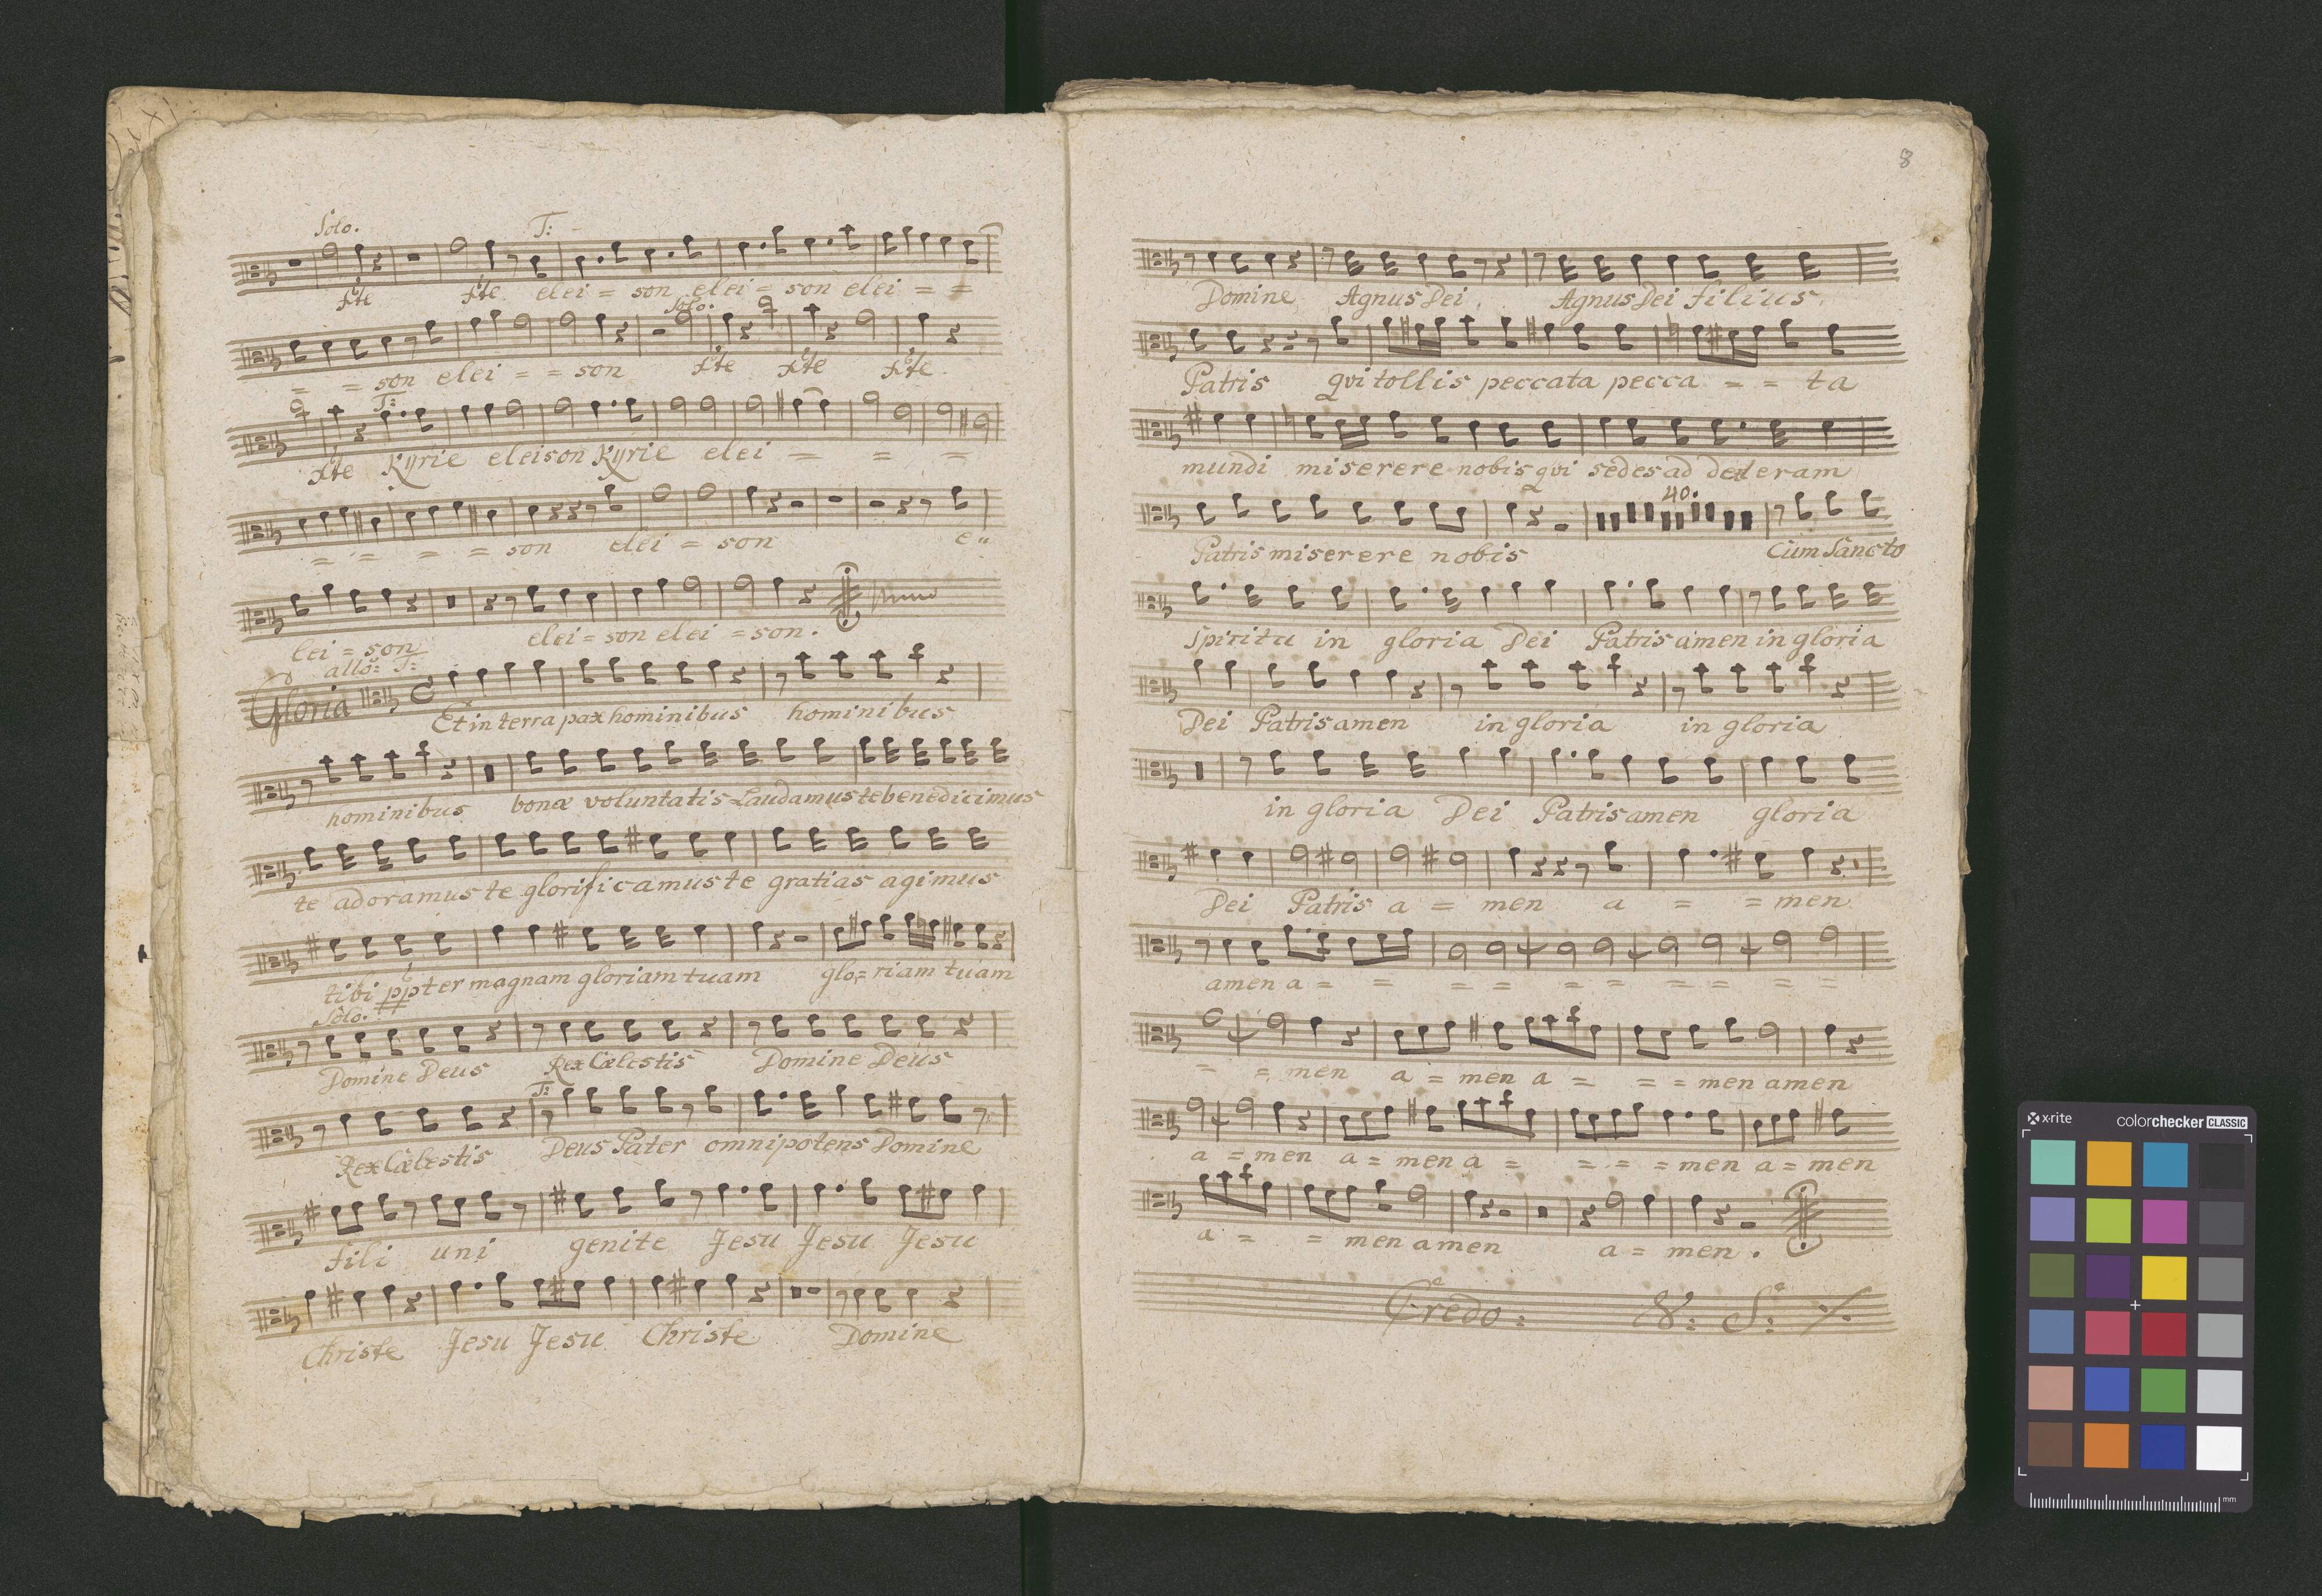 Solo. T:
xte xte elei = son elei = son elei = =
Solo.
= = son elei = = son xte xte xte
T:
xte Kyrie eleison Kyrie elei = = =
= = = = son elei = son e
lei = son elei = son elei = son.
allo: T:
Gloria Et in terra pax hominibus hominibus
hominibus bonæ voluntatis Laudamus te benedicimus
te adoramus te glorificamus te gratias agimus
tibi ppter magnam gloriam tuam glo = riam tuam
Solo.
Domine Deus Rex Cælestis Domine Deus
T:
Rex Cælestis Deus Pater omnipotens Domine
fili uni genite Jesu Jesu Jesu
Christe Jesu Jesu Christe Domine
8
Domine Agnus Dei Agnus Dei filius
Patris qvi tollis peccata pecca = = ta
mundi miserere nobis qvi sedes ad dexteram
40.
Patris miserere nobis Cum Sancto
Spiritu in gloria Dei Patris amen in gloria
Dei Patris amen in gloria in gloria
in gloria Dei Patris amen gloria
Dei Patris a = men a = = men
amen a = = = = = = = = = =
= = men a = men a = = = men amen
a = men a = men a = = = = men a = men
a = = men amen a = men.
Credo: V: S:
x·rite colorchecker CLASSIC
mm